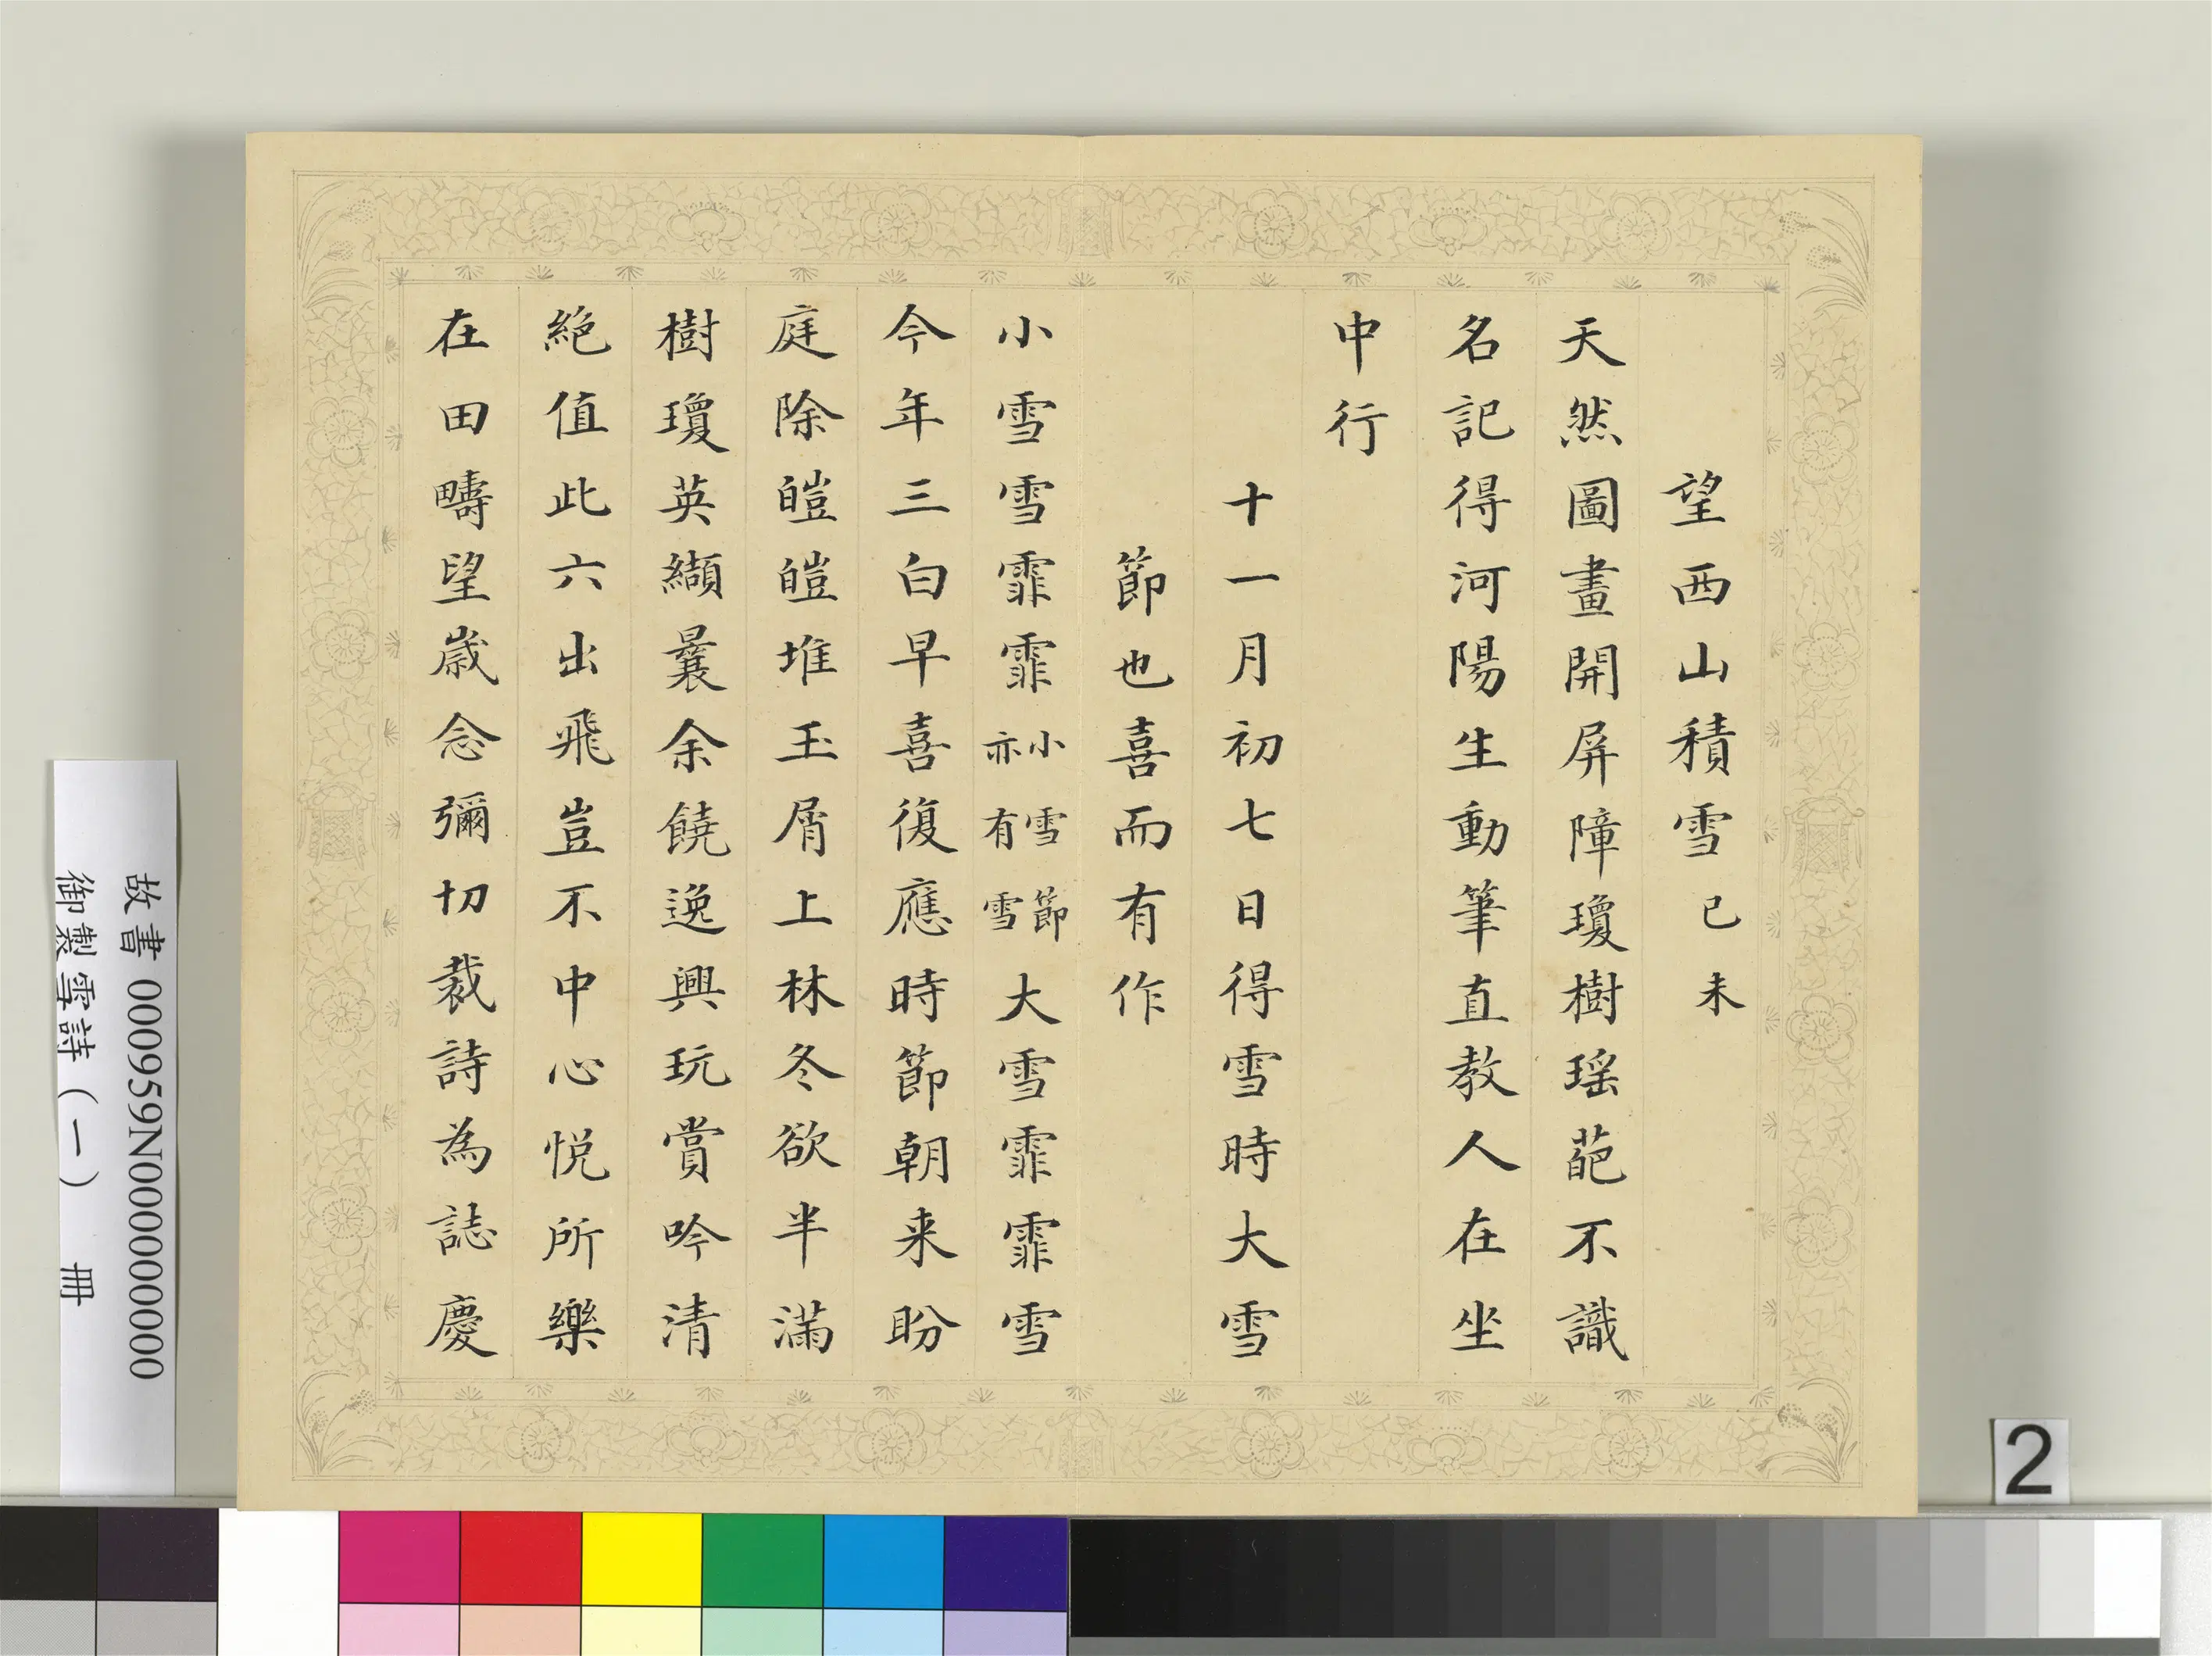 望西山積雪己未
天然圖畫開屏障瓊樹瑶葩不識
名記得河陽生動筆直教人在坐
中行
十一月初七日得雪時大雪
節也喜而有作
小雪雪霏霏小雪節亦有雪大雪霏霏雪
今年三白早喜復應時節朝来盼
庭除皚皚堆玉屑上林冬欲半滿
樹瓊英纈曩余饒逸興玩賞吟清
絕值此六出飛豈不中心悦所樂
在田疇望歲念彌切裁詩為誌慶
故書000959N000000000
御製雪詩(一) 冊
2